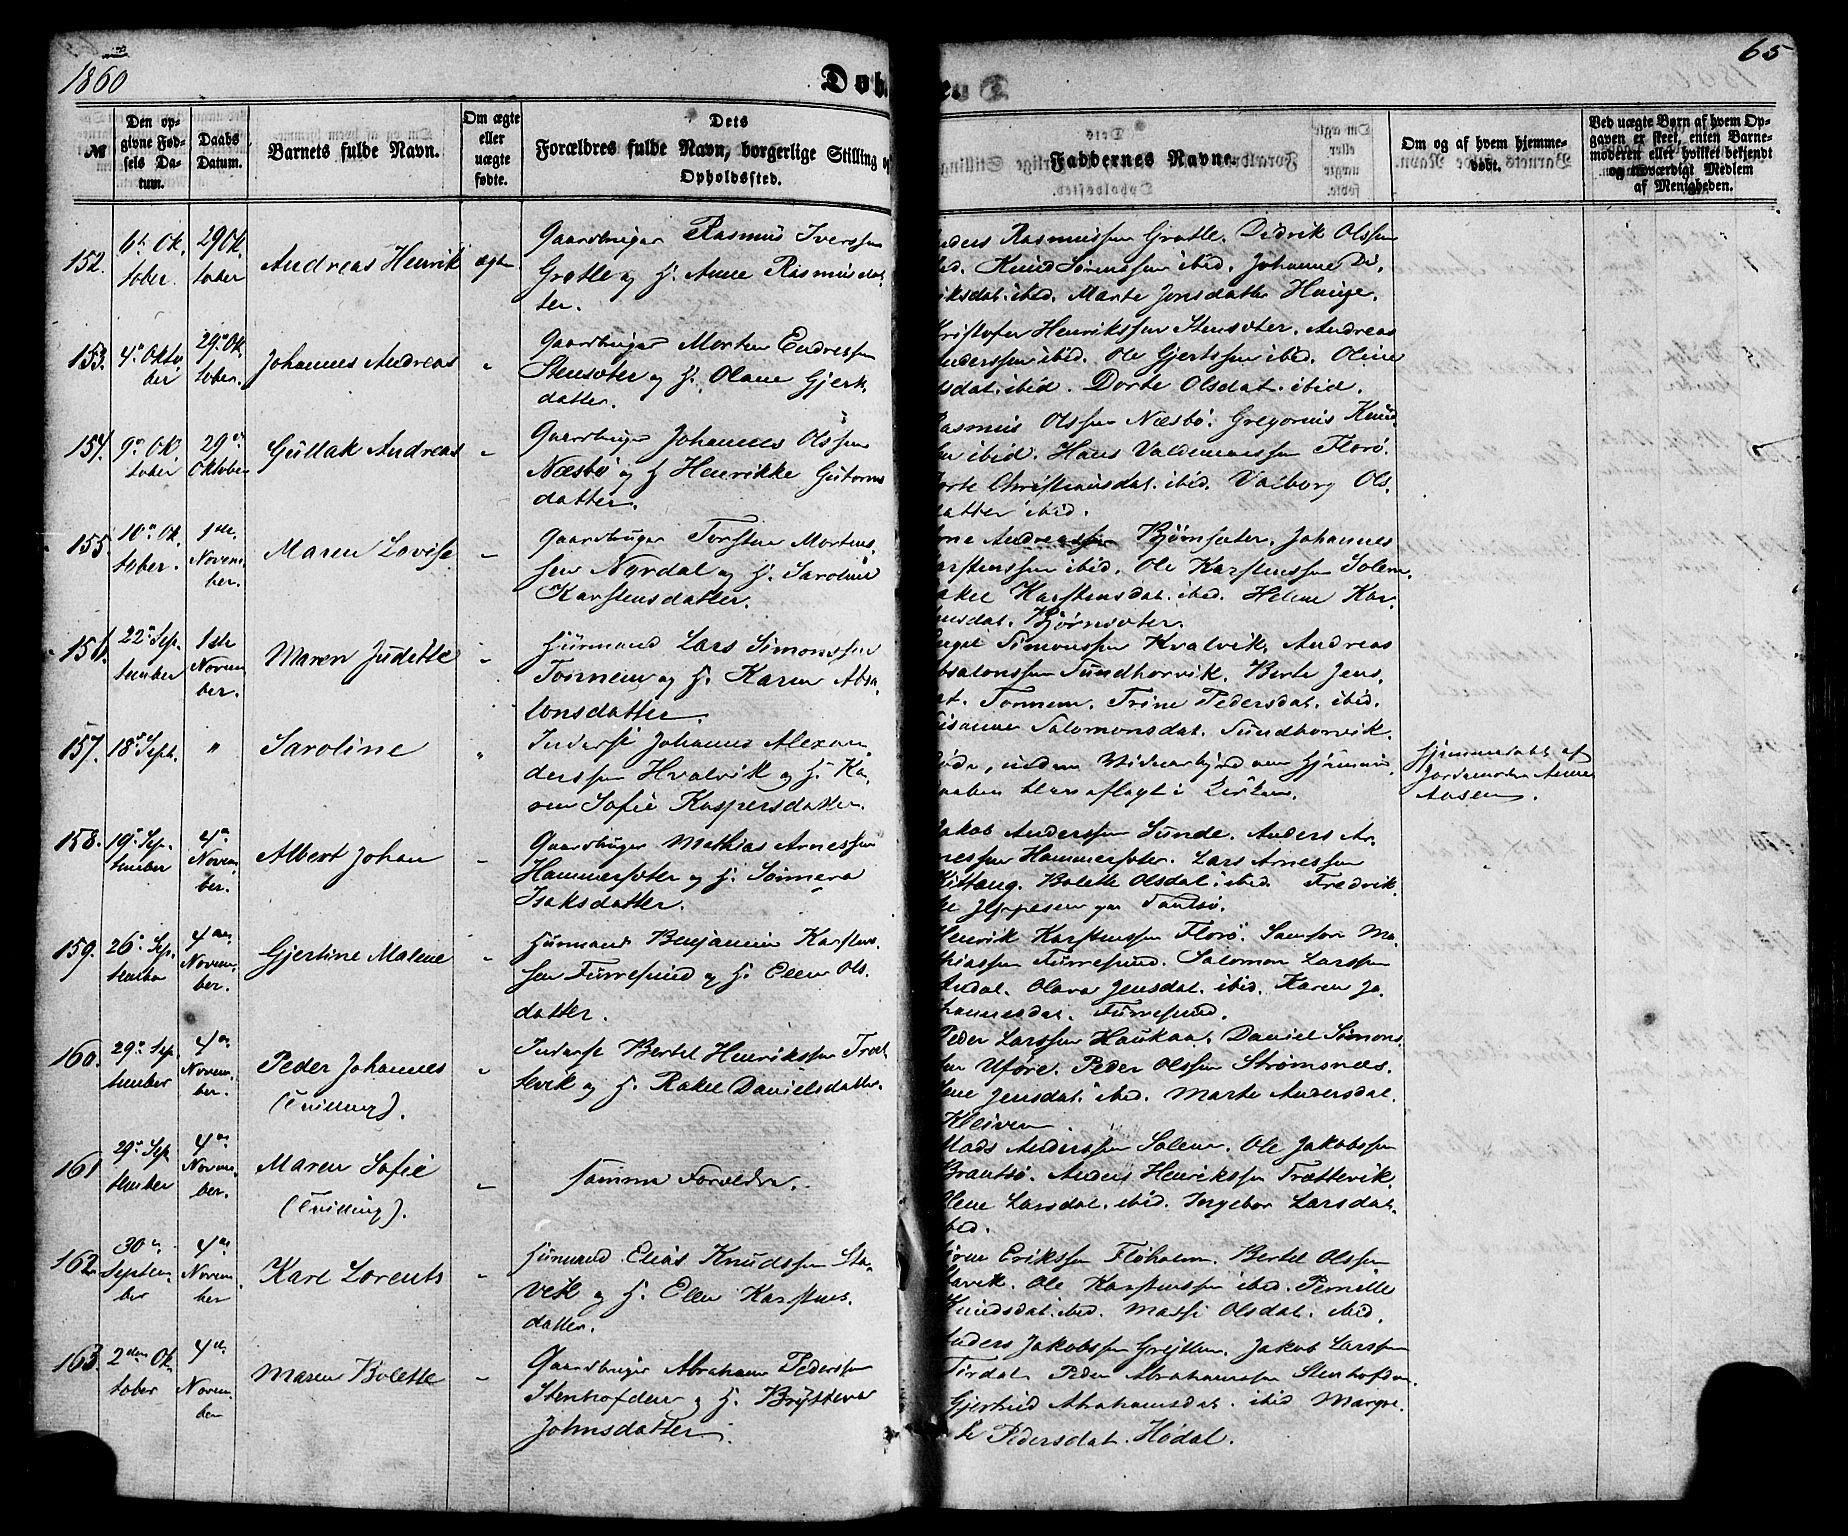 1860
Døb
65
№
Den op-
givne Fød-
sels Da-
tum.
Daabs
Datum.
Barnets fulde Navn.
Om ægte
eller
uægte
fødte.
Dets
Forældres fulde Navn, borgerlige Stilling og
Opholdssted.
Faddernes Navne.
Om og af hvem hjemme-
døbt.
Ved uægte Børn af hvem Op-
gaven er skeet, enten Barne-
moderen eller hvilket bekjendt
og troværdigt Medlem
af Menigheden.
152.
6te Ok-
tober.
29 Ok-
tober
Andreas Henrik
ægte
Gaardbruger Rasmus Iverssen
Grotle og H. Anne Rasmusdat-
ter.
Anders Rasmussen Grotle. Didrik Olssen
ibid. Knud Sørenssen ibid. Johanne Di-
riksdat. ibid. Marte Jonsdatter Hauge.
153.
4de Okto-
ber
29de Ok-
tober.
Johannes Andreas
"
Gaardbruger Morten Endressen
Stensæter og H. Olane Gjert-
datter.
Kristofer Henrikssen Stensæter. Andreas
Anderssen ibid. Ole Gjertssen ibid. Oline
Olsdat. ibid. Dorte Olsdat. ibid.
154.
9de Ok-
tober
29de
Oktober
Gullak Andreas
"
Gaardbruger Johannes Olssen
Næsbø og H. Henrikke Gutorms
datter.
Rasmus Olssen Næsbø. Gregorius Knud-
sen ibid. Hans Valdemarssen Florø.
Dorte Christiansdat. ibid. Valborg Ols-
datter ibid.
155.
10de Ok-
tober.
1ste
Novem-
ber.
Maren Lovise
"
Gaardbruger Torsten Mortens-
sen Nordal og H. Saroline
Karstensdatter.
Arne Andreassen Bjørnsæter. Johannes
Karstenssen ibid. Ole Karstenssen Solem.
Rakel Karstensdat. ibid. Helene Kar-
stensdat. Bjørnsæter.
156.
22de Sep-
tember
1ste
Novem-
ber.
Maren Judithe
"
Husmand Lars Simonssen
Tonnem og H. Karen Absa-
lonsdatter.
Engel Simonssen Kvalvik. Andreas
Absalonssen Sundhorvik. Berte Jens-
dat. Tonnem. Trine Pedersdat. ibid.
Susanna Salomonsdat. Sundhorvik.
157.
18de Sept.
"
Saroline
"
Inderst Johannes Alexan-
derssen Hvalvik og H. Ka-
ren Sofie Kaspersdatter.
Døde, inden Vidnesbyrd om Hjemme-
daaben blev aflagt i Kirken.
Hjemmedøbt af
Jordemoder Anne
Aasen.
158.
19de Sep-
tember
4de
Novem-
ber.
Albert Johan
"
Gaardbruger Mathias Arnessen
Hammersæter og H. Sønneva
Isaksdatter.
Jakob Anderssen Sunde. Anders Ar-
nessen Hammersæter. Lars Arnessen
Kittang. Bolette Olsdat. ibid. Fredrik-
ke Jeppesen
159.
26de Sep-
tember
4de
Novem-
ber.
Gjertine Malene
"
Husmand Benjamin Karstens-
sen Furresund og H. Ellen Ols-
datter.
Henrik Karstenssen Florø. Samson Ma-
thiassen Furresund. Salomon Larssen
Indal. Olava Jensdat. ibid. Karen Jo-
hannesdat. Furresund.
160.
29de Sep-
tember
4de
Novem-
ber.
Peder Johannes
(Tvilling).
"
Inderst Bertel Henrikssen Træt-
tevik og H. Rakel Danielsdatter.
Peder Larssen Haukaa. Daniel Simons-
sen Uføre. Peder Olssen Strømsnæs.
Lene Jensdat. ibid. Marte Andersdat.
Kleiven.
161
29de Sep-
tember
4de
Novem-
ber.
Maren Sofie
(Tvilling).
"
Samme Forældre.
Mads Anderssen Solem. Ole Jakobssen
Brandsø. Anders Henrikssen Trættevik.
Olene Larsdat. ibid. Ingebor Larsdat.
ibid.
162
30de
Septem-
ber
4de
Novem-
ber
Karl Lorents
"
Husmand Elias Knudssen Sta-
vik og H. Ellen Karstens-
datter.
Sørne Erikssen Floholm. Bertel Olssen
Stavik. Ole Karstenssen ibid. Pernille
Knudsdat. ibid. Matsi Olsdat. ibid.
163
2den Ok-
tober
4de
Novem-
ber
Maren Bolette
"
Gaardbruger Abraham Pederssen
Stenhofden og H. Bryteva
Johnsdatter.
Anders Jakobssen Grejtlen. Jakob Larssen
Tirdal. Peder Abrahamssen Stenhofden.
Gjertrud Abrahamsdat. ibid Margre-
te Pedersdat. Hødal.